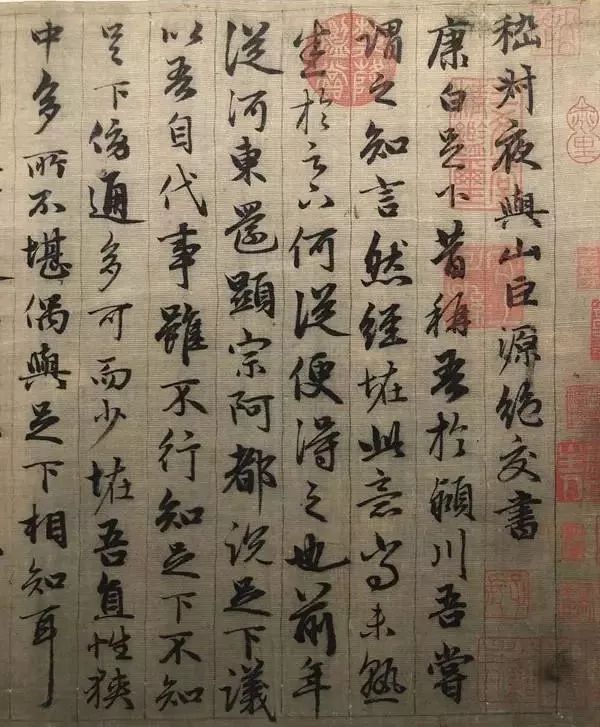 嵇叔夜與山巨源絶交書
康白足下昔稱吾於潁川吾嘗
謂之知言然經恠此意尚未熟
悉於足下何從便得之也前年
從河東還顯宗阿都說足下議
以吾自代事雖不行知足下不知
足下傍通多可而少恠吾直性狹
中多所不堪偶與足下相知耳